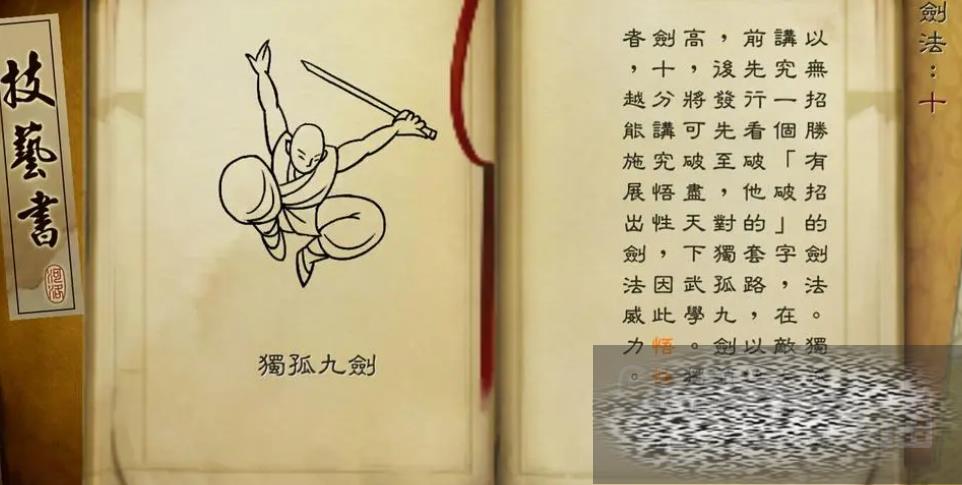 劍法：十
以無招勝有招的劍法。獨
講究一個「破」字，在敵
前先行看破他的套路，以
，後發先至，對獨孤九劍
高，將可破盡天下武學。
劍十分講究悟性，因此悟
者，越能施展出劍法威力。
獨孤九劍
技藝書
河洛